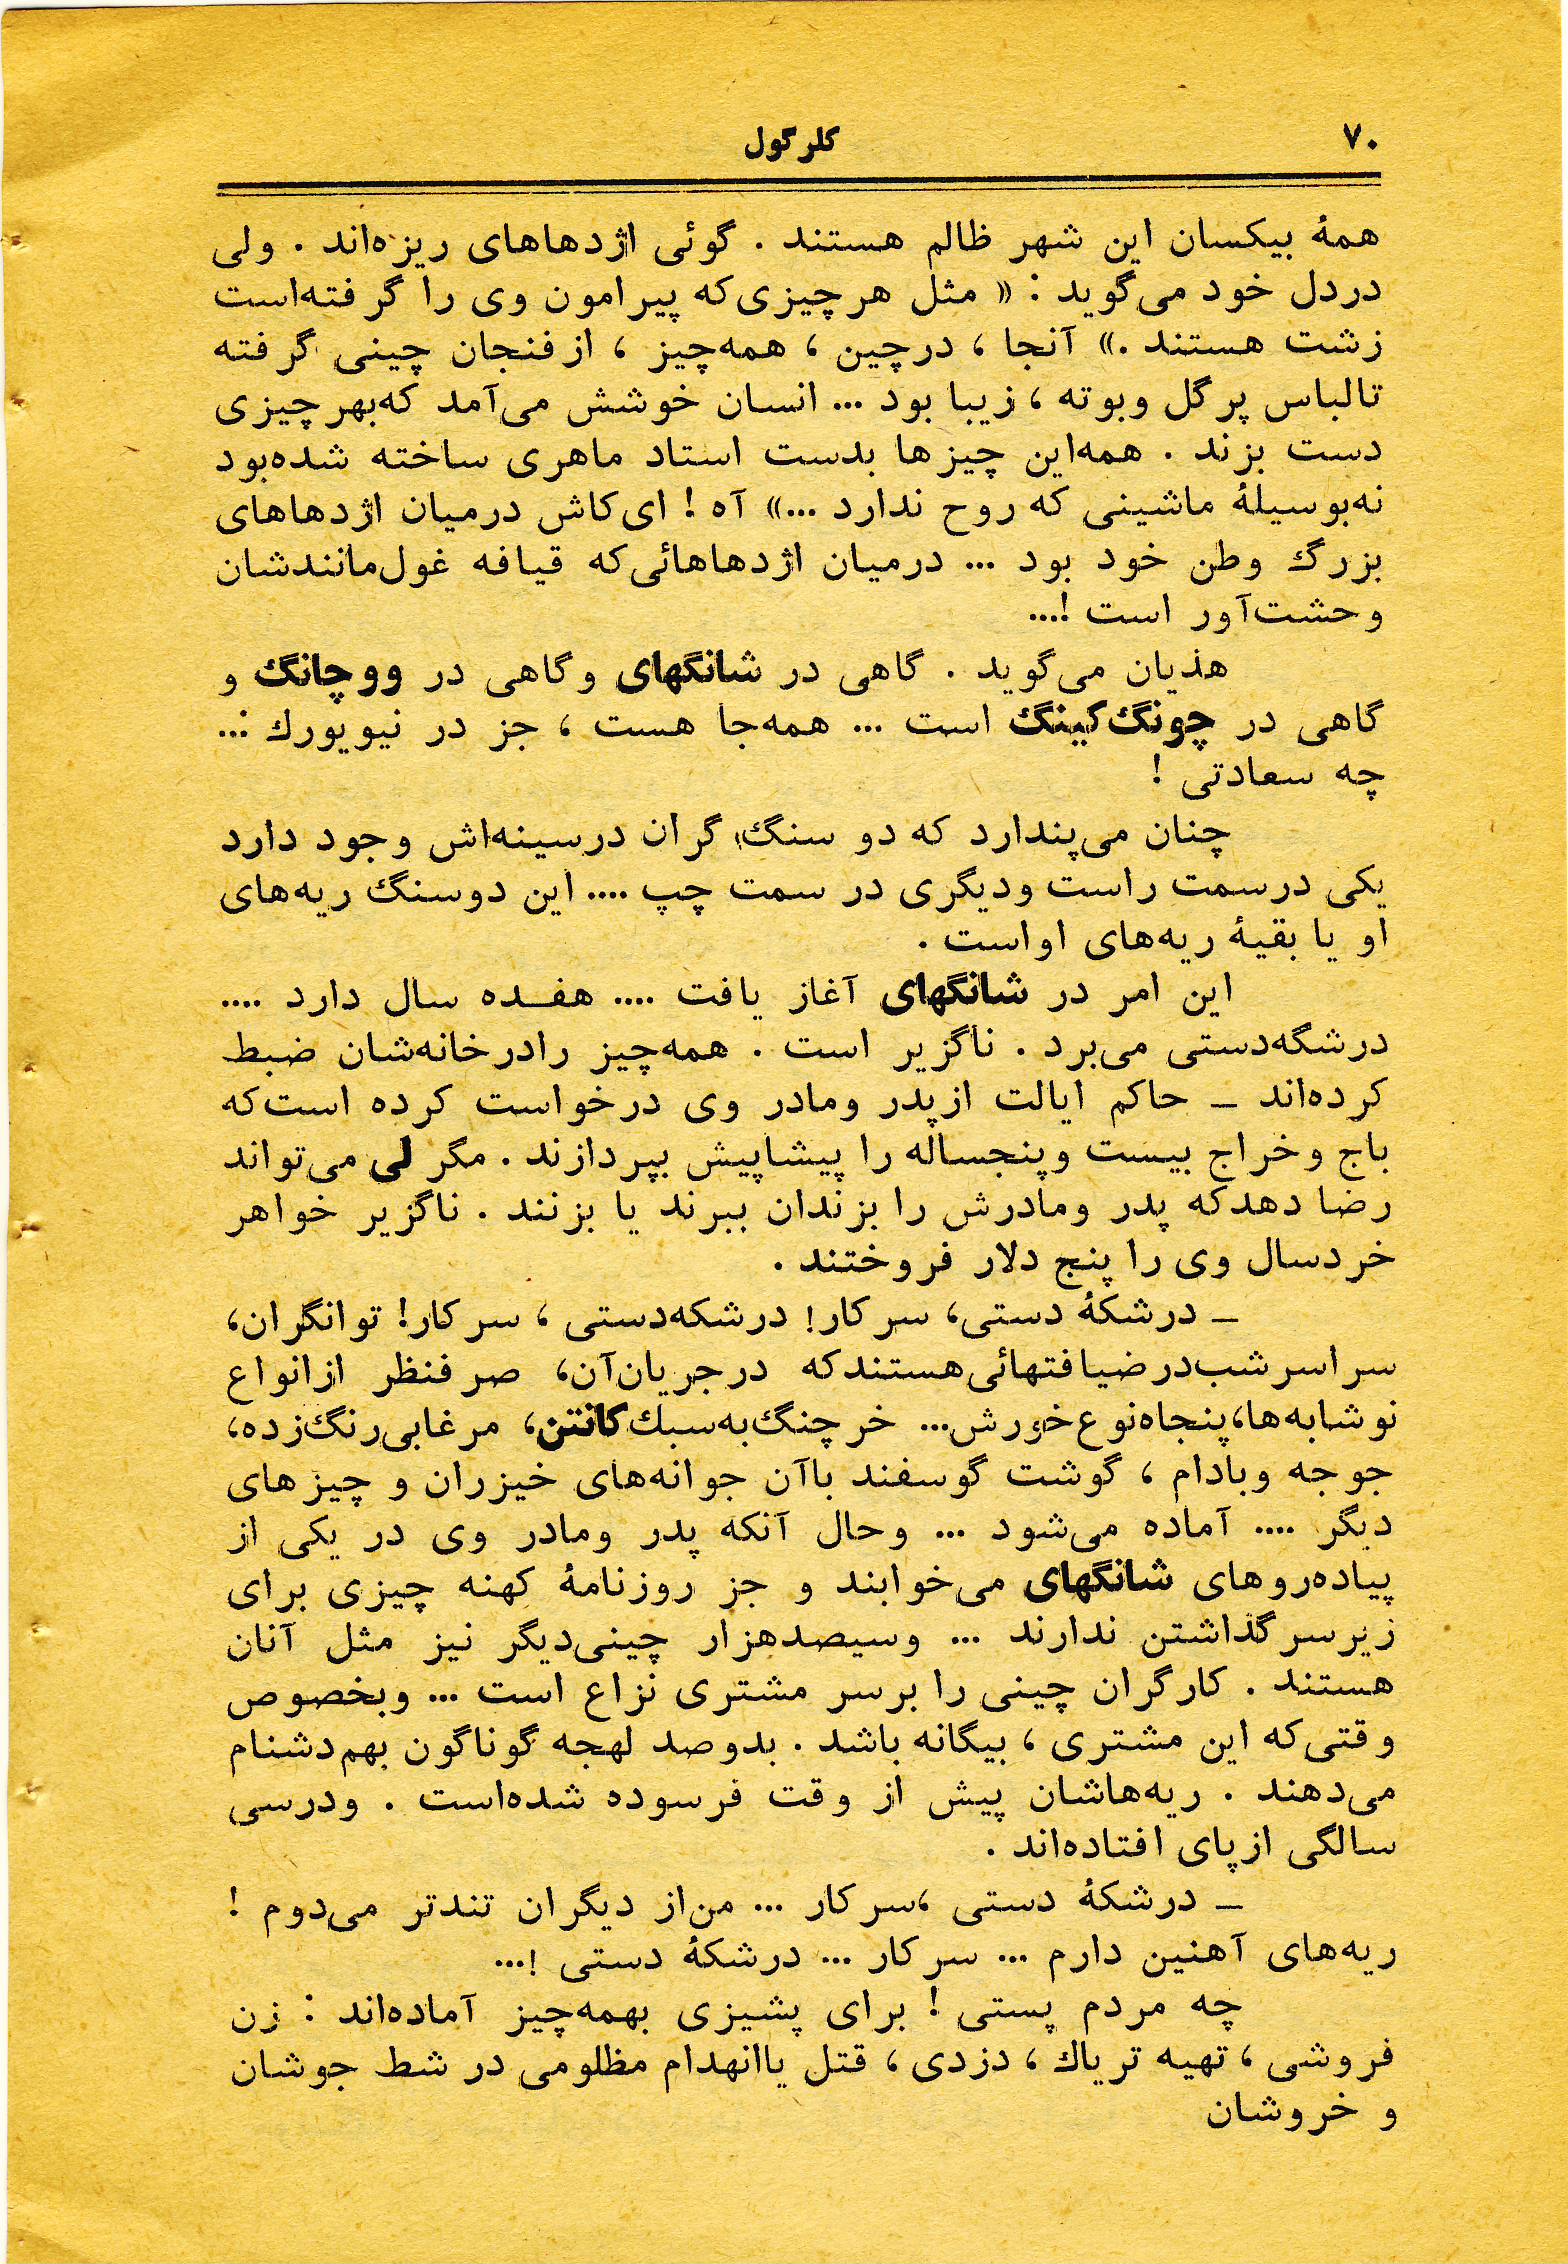 ۷۰
کلرگول
همهٔ بیکسان این شهر ظالم هستند . گوئی اژدهاهای ریزه‌اند . ولی
دردل خود می‌گوید : « مثل هرچیزی‌که پیرامون وی را گرفته‌است
زشت هستند .» آنجا ، درچین ، همه‌چیز ، ازفنجان چینی گرفته
تالباس پرگل وبوته ، زیبا بود ... انسان خوشش می‌آمد که‌بهرچیزی
دست بزند . همه‌این چیزها بدست استاد ماهری ساخته شده‌بود
نه‌بوسیلهٔ ماشینی که روح ندارد ...» آه ! ای‌کاش درمیان اژدهاهای
بزرگ وطن خود بود ... درمیان اژدهاهائی‌که قیافه غول‌مانندشان
وحشت‌آور است !...
هذیان می‌گوید . گاهی در شانگهای وگاهی در ووچانگ و
گاهی در چونگ‌کینگ است ... همه‌جا هست ، جز در نیویورك ...
چه سعادتی !
چنان می‌پندارد که دو سنگ گران درسینه‌اش وجود دارد
یکی درسمت راست ودیگری در سمت چپ .... این دوسنگ ریه‌های
او یا بقیهٔ ریه‌های اواست .
این امر در شانگهای آغاز یافت .... هفـده سال دارد ....
درشگه‌دستی می‌برد . ناگزیر است . همه‌چیز رادرخانه‌شان ضبط
کرده‌اند ـ حاکم ایالت ازپدر ومادر وی درخواست کرده است‌که
باج وخراج بیست وپنجساله را پیشاپیش بپردازند . مگر لی می‌تواند
رضا دهدکه پدر ومادرش را بزندان ببرند یا بزنند . ناگزیر خواهر
خردسال وی را پنج دلار فروختند .
ـ درشکهٔ دستی، سرکار! درشکه‌دستی ، سرکار! توانگران،
سراسرشب‌درضیافتهائی‌هستندکه درجریان‌آن، صرفنظر ازانواع
نوشابه‌ها،پنجاه‌نوع‌خورش... خرچنگ‌به‌سبك‌کانتن، مرغابی‌رنگ‌زده،
جوجه وبادام ، گوشت گوسفند باآن جوانه‌های خیزران و چیزهای
دیگر .... آماده می‌شود ... وحال آنکه پدر ومادر وی در یکی از
پیاده‌روهای شانگهای می‌خوابند و جز روزنامهٔ کهنه چیزی برای
زیرسرگذاشتن ندارند ... وسیصدهزار چینی‌دیگر نیز مثل آنان
هستند . کارگران چینی را برسر مشتری نزاع است ... وبخصوص
وقتی‌که این مشتری ، بیگانه باشد . بدوصد لهجه گوناگون بهم‌دشنام
می‌دهند . ریه‌هاشان پیش از وقت فرسوده شده‌است . ودرسی
سالگی ازپای افتاده‌اند .
ـ درشکهٔ دستی ،سرکار ... من‌از دیگران تندتر می‌دوم !
ریه‌های آهنین دارم ... سرکار ... درشکهٔ دستی !...
چه مردم پستی ! برای پشیزی بهمه‌چیز آماده‌اند : زن
فروشی ، تهیه تریاك ، دزدی ، قتل یاانهدام مظلومی در شط جوشان
و خروشان